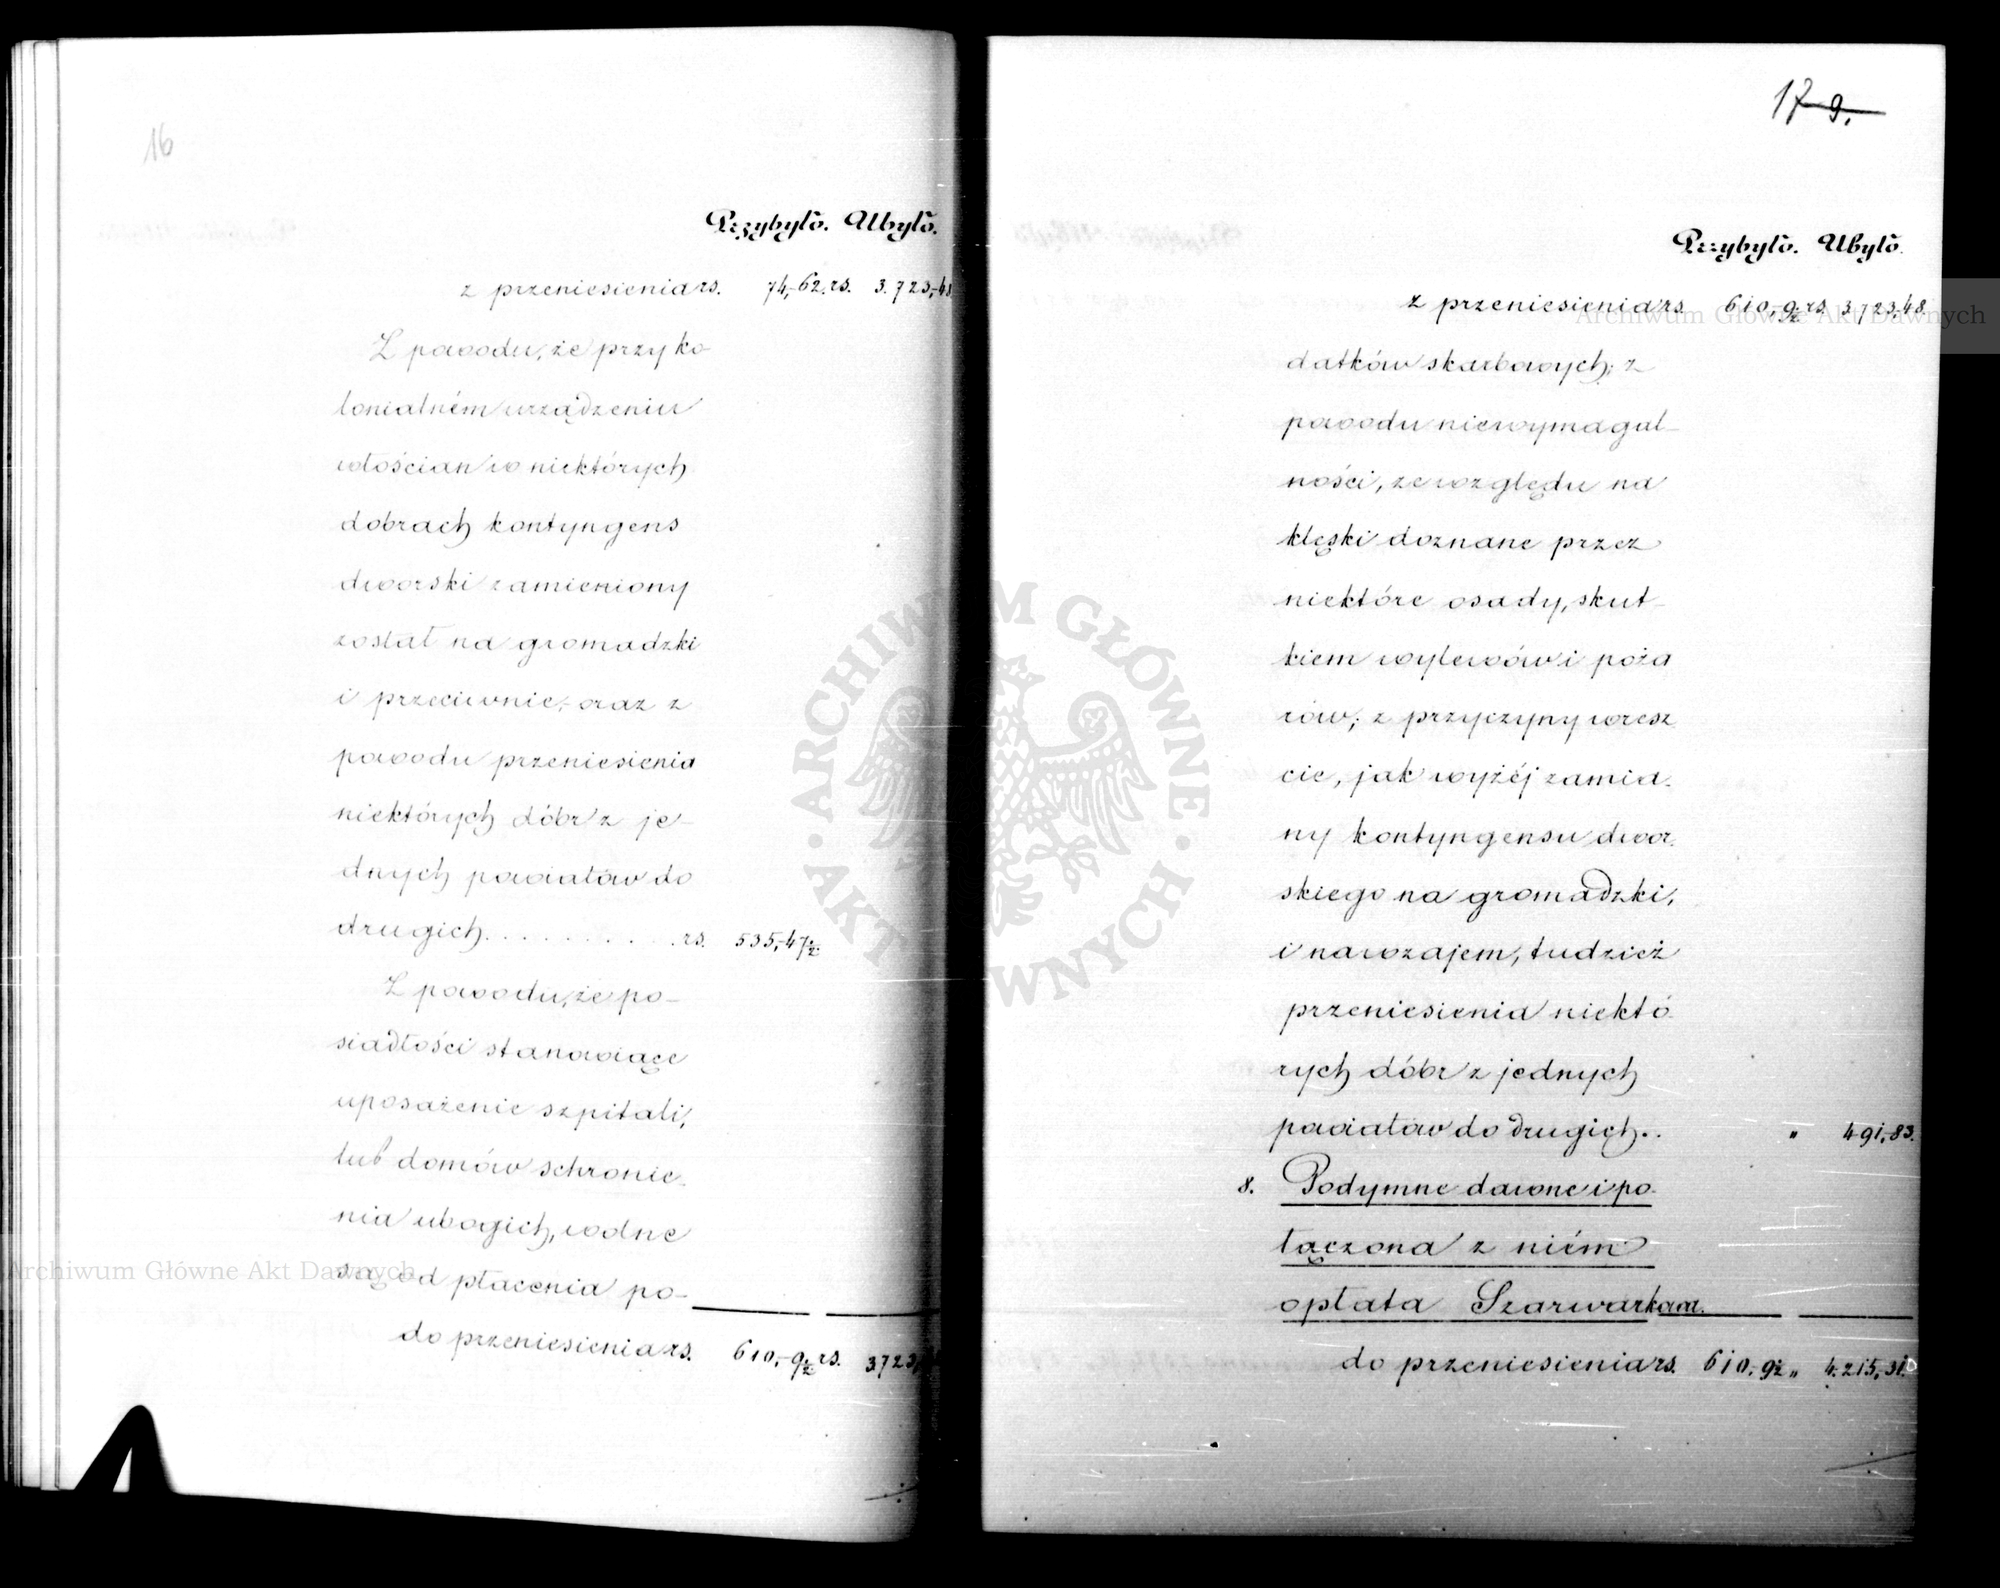 16
Przybyło. Ubyło.
z przeniesienia rs. 74,-62. rs. 3.723,-48
Z powodu, że przy ko-
lonialném urządzeniu
włościan w niektórych
dobrach kontyngens
dworski zamieniony
został na gromadzki
i przeciwnie, oraz z
powodu przeniesienia
niektórych dóbr z je-
dnych powiatów do
drugich . . . . . . . . . . rs. 535,-47½
Z powodu, że po-
siadłości stanowiące
uposażenie szpitali,
lub domów schronie-
nia ubogich, wolne
są od płacenia po-
do przeniesienia rs. 610,-9½ rs. 3.723,
17 9.
Przybyło. Ubyło.
z przeniesienia rs. 610,-9½ rs. 3.723,48.
datków skarbowych; z
powodu niewymagal-
ności, ze względu na
klęski doznane przez
niektóre osady, skut-
kiem wylewów i poża
rów; z przyczyny wresz
cie, jak wyżéj zamia-
ny kontyngensu dwor-
skiego na gromadzki,
i nawzajem, tudzież
przeniesienia niektó-
rych dóbr z jednych
powiatów do drugich . . „ 491,-83.
8. Podymne dawne i po-
łączona z niém
opłata Szarwarkowa.
do przeniesienia rs. 610,-9½ „ 4.215,-31.
ARCHIWUM GŁÓWNE AKT DAWNYCH
Archiwum Główne Akt Dawnych
Archiwum Główne Akt Dawnych